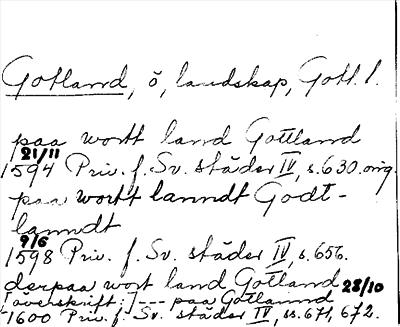 Gotland, ö, landskap, Gotl. l.
paa wortt land Gottland
21/11
1594 Priv. f. Sv. städer IV, s. 630. orig.
paa wortt lanndt Godt-
lanndt
9/6
1598 Priv. f. Sv. städer IV, s. 656.
derpaa wort land Gotland 28/10
[överskrift:] --- paa Gotlannd
1600 Priv. f. Sv. städer IV, ss. 671, 672.